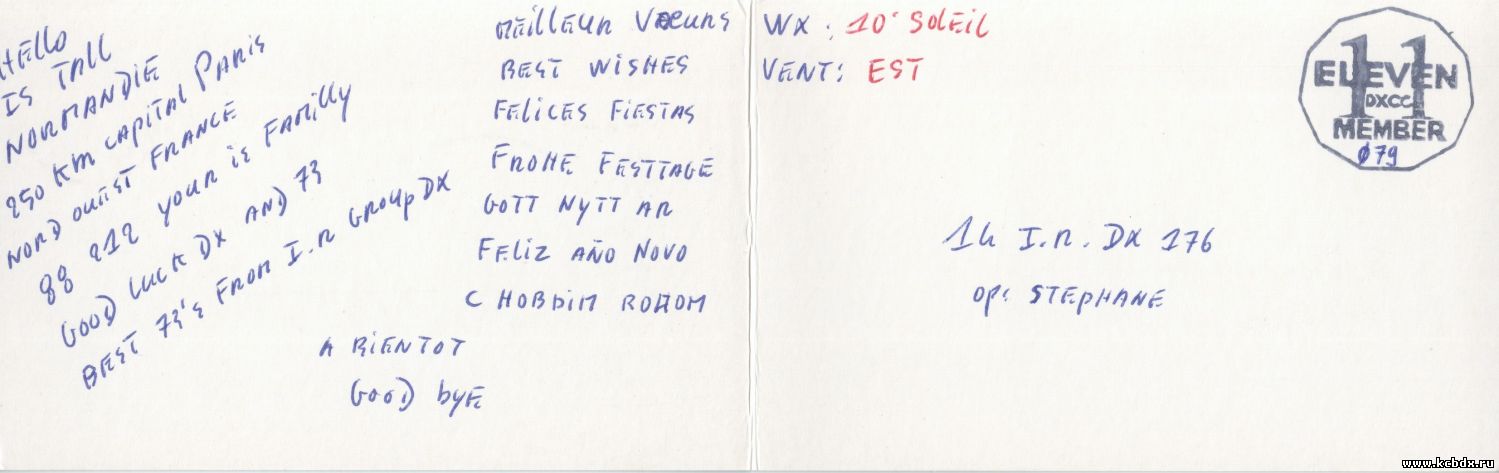 HELLO
IS TALL
NORMANDIE
250 KM CAPITAL PARIS
NORD OUEST FRANCE
88 212 YOUR IS FAMILLY
GOOD LUCK DX AND 73
BEST 73's FROM I.R GROUP DX
MEILLEUR VOEUNS
BEST WISHES
FELICES FIESTAS
FROHE FESTTAGE
GOTT NYTT AR
FELIZ AÑO NOVO
С НОВЫМ ГОДОМ
A BIENTOT
GOOD byE
WX : 10° SOLEIL
VENT: EST
11
ELEVEN
DXCC
MEMBER
079
14 I.R. DX 176
OP: STEPHANE
www.kcbdx.ru